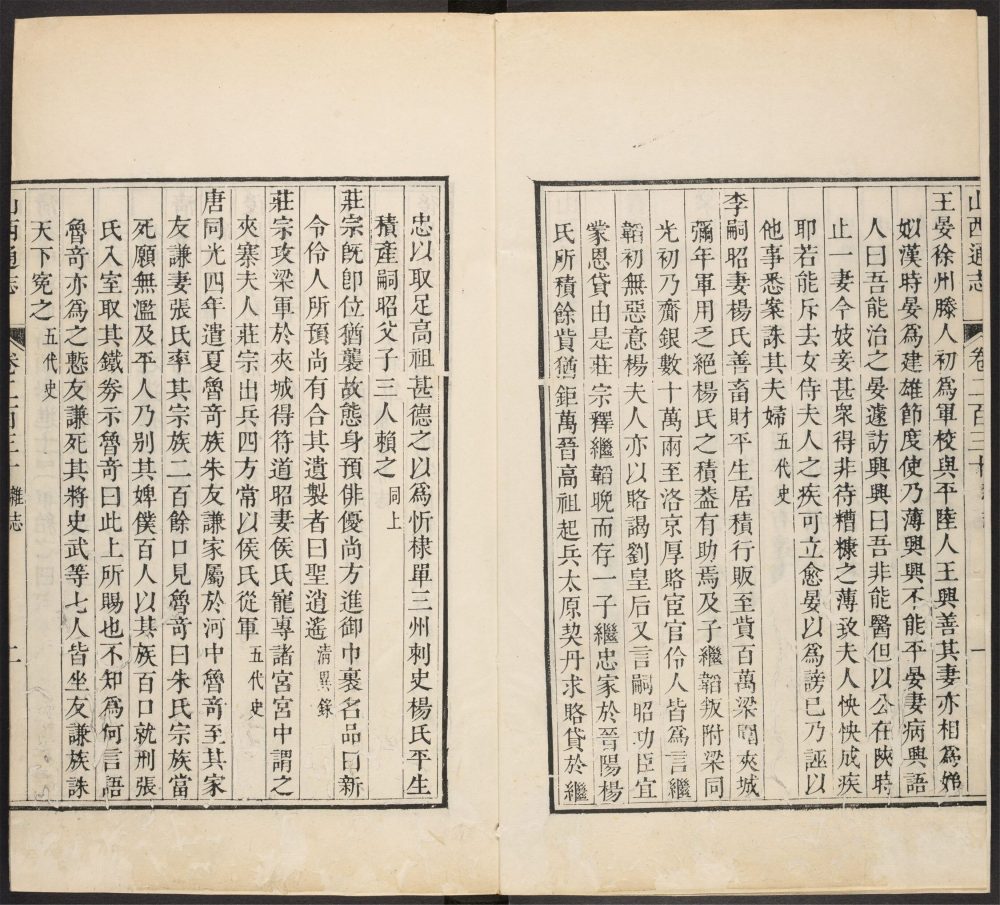 山西通志
卷二百三十
一
王晏徐州滕人初爲軍校與平陸人王興善其妻亦相爲娣
姒漢時晏爲建雄節度使乃薄興興不能平晏妻病興語
人曰吾能治之晏遽訪興興曰吾非能醫但以公在陝時
止一妻今妓妾甚衆得非待糟糠之薄致夫人怏怏成疾
耶若能斥去女侍夫人之疾可立愈晏以爲謗已乃誣以
他事悉案誅其夫婦 五代史
李嗣昭妻楊氏善畜財平生居積行販至貲百萬梁圍夾城
彌年軍用乏絕楊氏之積葢有助焉及子繼韜叛附梁同
光初乃齎銀數十萬兩至洛京厚賂宦官伶人皆爲言繼
韜初無惡意楊夫人亦以賂謁劉皇后又言嗣昭功臣宜
蒙恩貸由是莊宗釋繼韜晚而存一子繼忠家於晉陽楊
氏所積餘貲猶鉅萬晉高祖起兵太原契丹求賂貸於繼
忠以取足高祖甚德之以爲忻棣單三州刺史楊氏平生
積產嗣昭父子三人賴之 同上
莊宗旣卽位猶襲故態身預俳優尚方進御巾裹名品日新
令伶人所預尚有合其遺製者曰聖逍遙 淸異錄
莊宗攻梁軍於夾城得符道昭妻侯氏寵專諸宮宮中謂之
夾寨夫人莊宗出兵四方常以侯氏從軍 五代史
唐同光四年遣夏魯奇族朱友謙家屬於河中魯奇至其家
友謙妻張氏率其宗族二百餘口見魯奇曰朱氏宗族當
死願無濫及平人乃别其婢僕百人以其族百口就刑張
氏入室取其鐵劵示魯奇曰此上所賜也不知爲何言語
魯奇亦爲之慙友謙死其將史武等七人皆坐友謙族誅
天下寃之 五代史
山西通志
卷二百三十 雜志
二